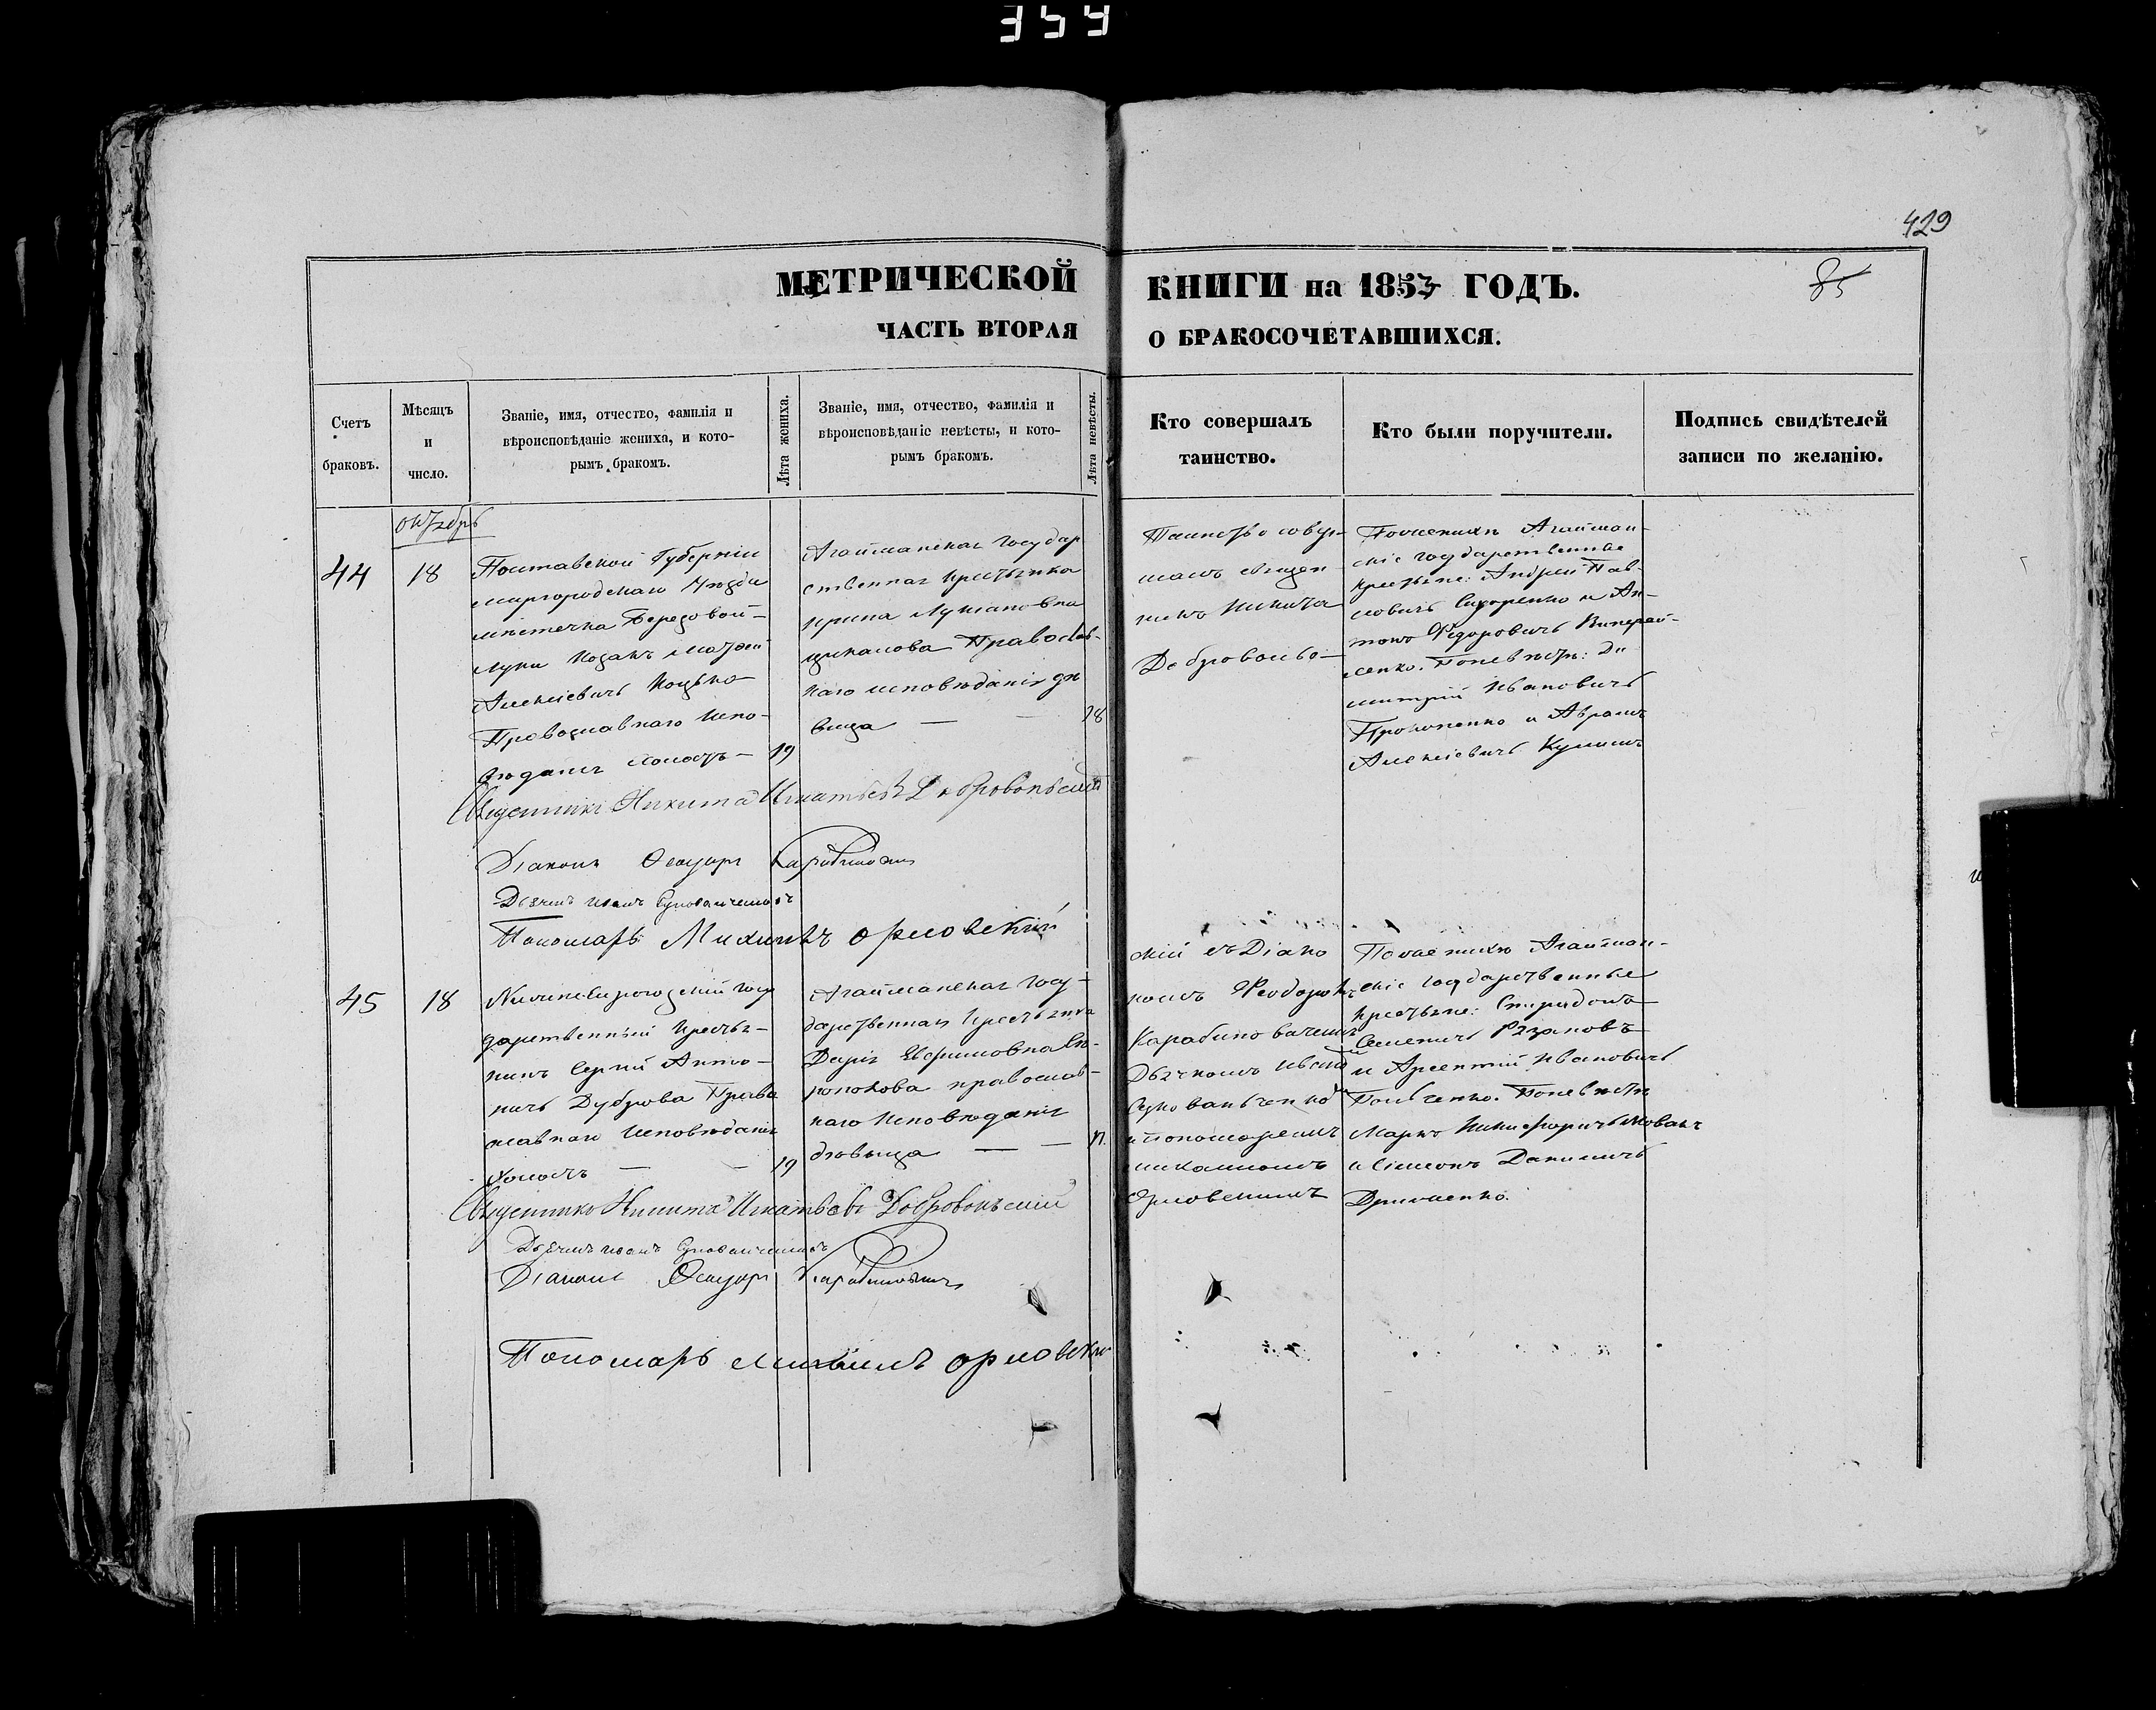 359
429
МЕТРИЧЕСКОЙ КНИГИ на 1857 ГОДЪ.
85
ЧАСТЬ ВТОРАЯ О БРАКОСОЧЕТАВШИХСЯ.
Счетъ браковъ.
Мѣсяцъ и число.
Званіе, имя, отчество, фамилія и
вѣроисповѣданіе жениха, и кото-
рымъ бракомъ.
Лѣта жениха.
Званіе, имя, отчество, фамилія и
вѣроисповѣданіе невѣсты, и кото-
рымъ бракомъ.
Лѣта невѣсты.
Кто совершалъ
таинство.
Кто были поручители.
Подпись свидѣтелей
записи по желанію.
октябрь
44
18
Полтавской Губерніи
Миргородскаго Уѣзда
мѣстечка Березовой-
Луки Козакъ Матѳей
Алексіевичъ Коцько
Православнаго Испо-
вѣданія холостъ —
19
Агайманская Государ
ственная крестьянка
Ирина Лукіановна
православ-
наго исповѣданія дѣ
вица — —
18
Таинство совер-
шалъ священ
никъ Никита
Доброволь-
По женихѣ Агайман-
скіе государственные
крестьяне: Андрей Пав-
ловичъ Сидоренко и Ан-
тонъ Ѳедоровичъ
По невѣстѣ: Ди
митрій Ивановичъ
Прокопенко и Аврамъ
Алексіевичъ Кулишъ
Священникъ Никита Игнатьевъ Добровольскій
Діаконъ Ѳеодоръ Карабиновичъ
Дьячекъ Иванъ
Пономарь Михаилъ Орловскій
45
18
Нижнесирогозскій Госу
дарственный Крестья-
нинъ Сергій Анто-
ничъ Дуброва Право
славнаго Исповѣданія
холостъ — —
19
Агайманская Госу-
дарственная Крестьянка
Дарія Евфимовна
православ-
наго Исповѣданія
дѣвица — —
17.
скій съ Діако
номъ Ѳеодоромъ
Карабиновичемъ
Дьячкомъ Иваномъ
и Пономаремъ
Михаиломъ
Орловскимъ
По женихѣ Агайман-
скіе государственные
крестьяне: Спиридонъ
Семеничъ Рязановъ
и Арсентій Ивановичъ
По невѣстѣ
Марко Никифоричъ
и Симеонъ Даниличъ
Священникъ Никита Игнатьевъ Добровольскій
Дьячекъ Иванъ
Діаконъ Ѳеодоръ Карабиновичъ
Пономарь Михаилъ Орловскій